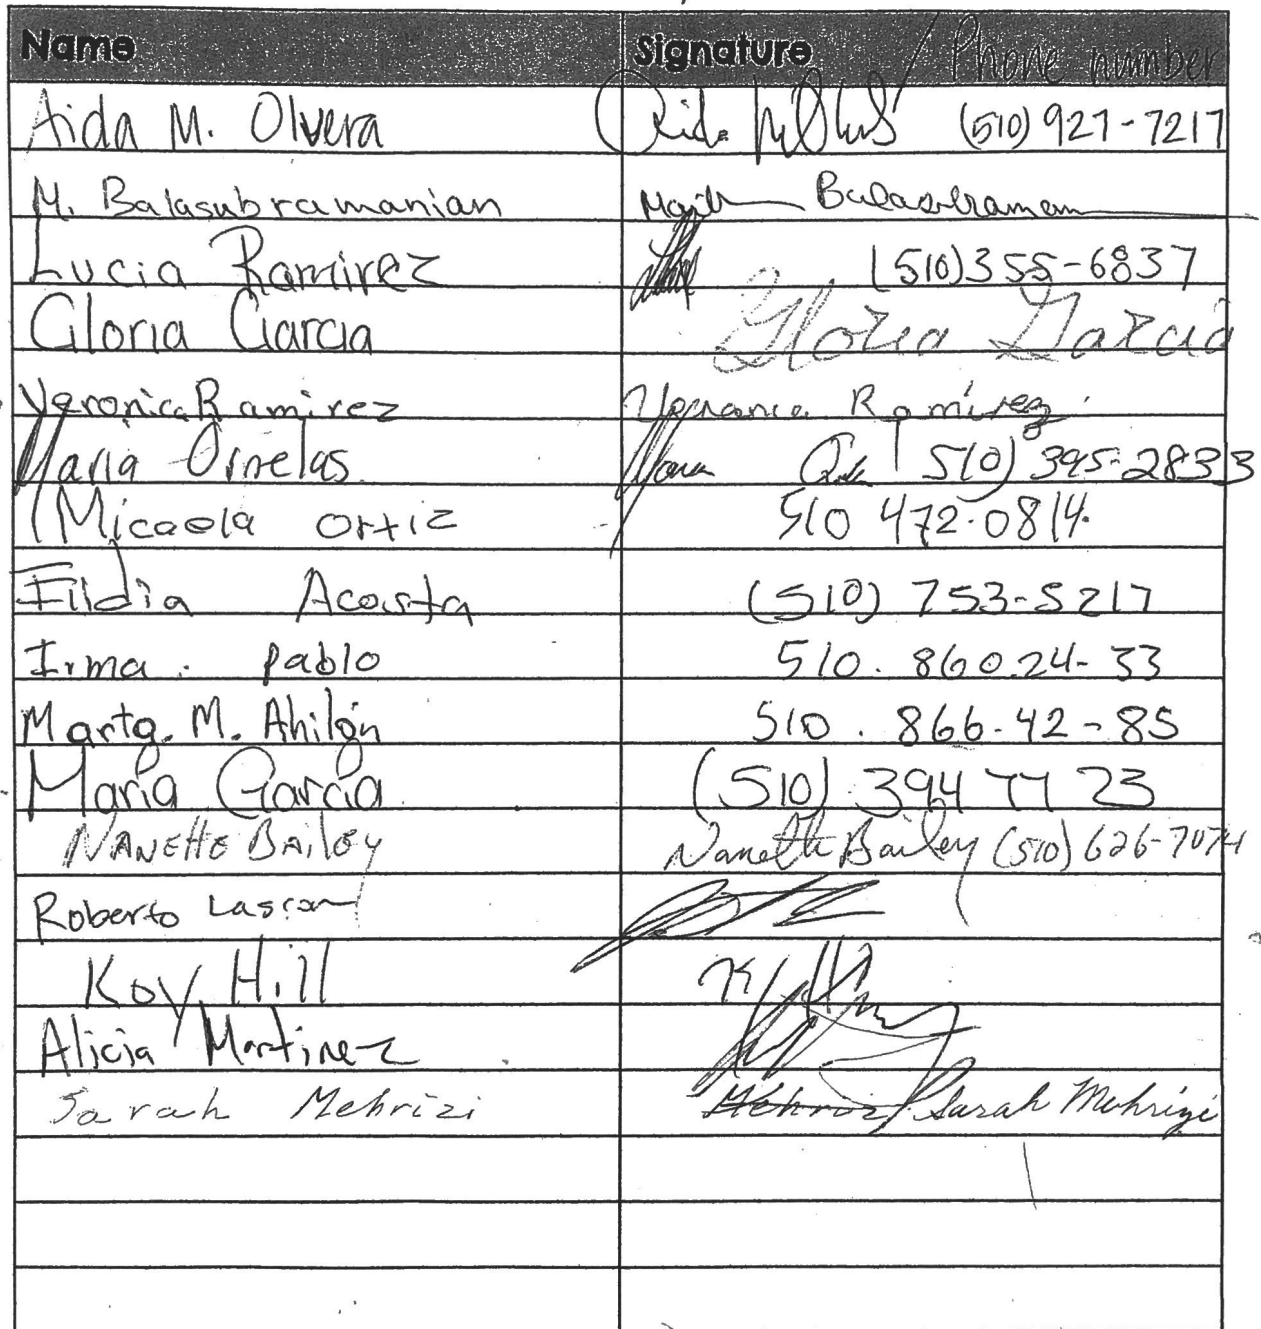 Name Signature / Phone number
Aida M. Olvera (510) 927-7217
M. Balasubramanian Balasubramanian
Lucia Ramirez (510)355-6837
Gloria Garcia Gloria Garcia
Veronica Ramirez Veronica Ramirez
Maria Ornelas Maria 510) 395-2833
Micaela Ortiz 510 472-0814
Elidia Acosta (510) 753-5217
Irma. Pablo 510. 860.24-33
Marta. M. Ahilón 510. 866-42-85
Maria Garcia (510) 394 77 23
NANEttE BAilEy Nanette Bailey (510) 626-7074
Roberto
Koy Hill
Alicia Martinez
Sarah Mehrizi Sarah Mehrizi